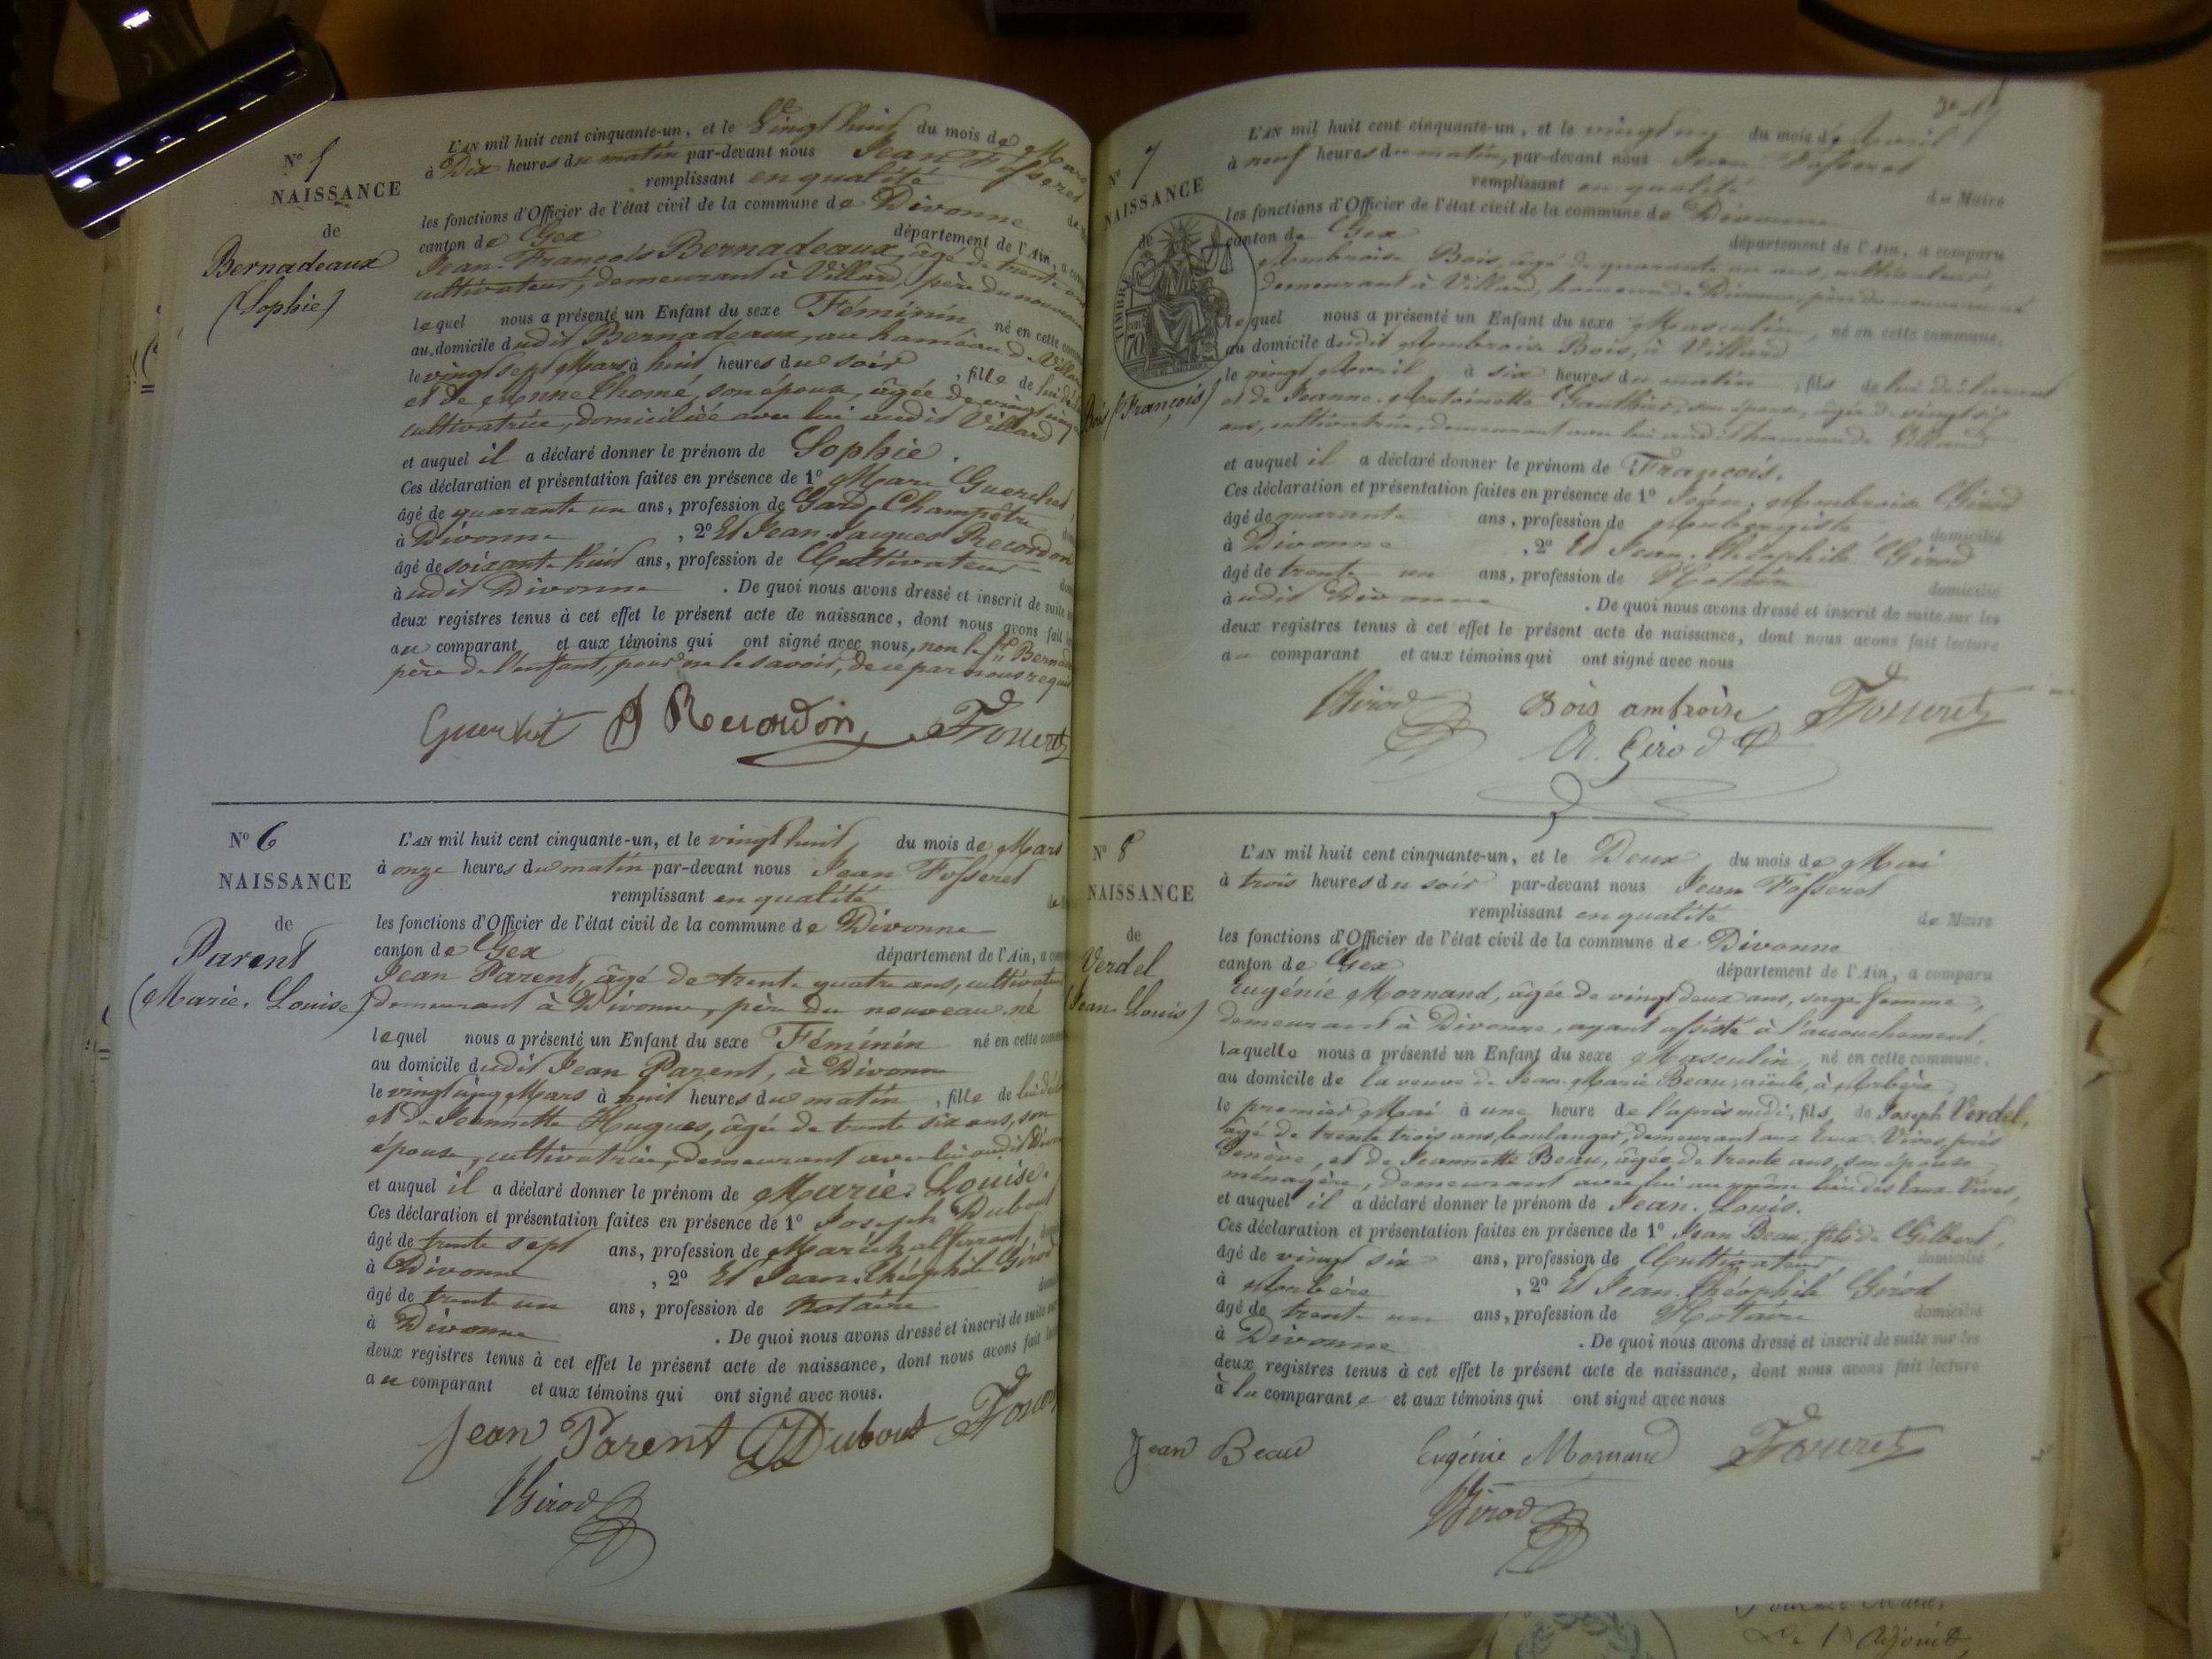 N° 5
NAISSANCE
de
Bernadeaux
(Sophie)
L'AN mil huit cent cinquante-un, et le Vingt huit du mois de Mars
à Dix heures du matin par-devant nous Jean Fosseret
remplissant en qualité de
les fonctions d'Officier de l'état civil de la commune de Divonne
canton de Gex département de l'Ain, a
Jean-François Bernadeaux, âgé de trente
cultivateur, demeurant à Villard, père du nouveau
lequel nous a présenté un Enfant du sexe Féminin né en cette
au domicile dudit Bernadeaux, au hameau de Villard
le vingt sept Mars à huit heures du soir, fille de lui
et de Anne Thomé, son épouse, âgée de vingt cinq
cultivatrice, domiciliée avec lui audit Villard
et auquel il a déclaré donner le prénom de Sophie.
Ces déclaration et présentation faites en présence de 1° Marc Guerchet
âgé de quarante un ans, profession de Gard. Champêtre
à Divonne, 2° Et Jean-Jacques Recordon
âgé de soixante huit ans, profession de Cultivateur
à udit Divonne. De quoi nous avons dressé et inscrit de suite
deux registres tenus à cet effet le présent acte de naissance, dont nous avons fait
au comparant et aux témoins qui ont signé avec nous, non le sr
père de l'enfant, pour ne le savoir, de ce par nous requis
Guerchet J Recordon Fosseret
N° 6
NAISSANCE
de
Parent
(Marie-Louise)
L'AN mil huit cent cinquante-un, et le vingt huit du mois de Mars
à onze heures du matin par-devant nous Jean Fosseret
remplissant en qualité
les fonctions d'Officier de l'état civil de la commune de Divonne
canton de Gex département de l'Ain, a
Jean Parent, âgé de trente quatre ans, cultivateur
demeurant à Divonne, père du nouveau né
lequel nous a présenté un Enfant du sexe Féminin né en cette
au domicile dudit Jean Parent, à Divonne
le vingt cinq Mars à huit heures du matin, fille de lui
et de Jeannette Hugues, âgée de trente six ans, son
épouse, cultivatrice, demeurant avec lui audit
et auquel il a déclaré donner le prénom de Marie-Louise.
Ces déclaration et présentation faites en présence de 1° Joseph Dubout
âgé de trente sept ans, profession de Maréchal ferrant,
à Divonne, 2° Et Jean-Théophile Girod
âgé de trente un ans, profession de Notaire
à Divonne. De quoi nous avons dressé et inscrit de suite
deux registres tenus à cet effet le présent acte de naissance, dont nous avons fait
au comparant et aux témoins qui ont signé avec nous.
Jean Parent Dubout
Girod
N° 7
NAISSANCE
de
TIMBRE
70
Bois (François)
L'AN mil huit cent cinquante-un, et le vingt un du mois de Avril
à neuf heures du matin, par-devant nous Jean Fosseret
remplissant en qualité de Maire
les fonctions d'Officier de l'état civil de la commune de Divonne
canton de Gex département de l'Ain, a comparu
Ambroise Bois, âgé de quarante un ans, cultivateur,
demeurant à Villard, hameau de Divonne, père du nouveau né
lequel nous a présenté un Enfant du sexe Masculin, né en cette commune,
au domicile dudit Ambroise Bois, à Villard
le vingt Avril, à six heures du matin, fils de lui déclarant
et de Jeanne-Antoinette Gauthier, son épouse, âgée de vingt six
ans, cultivatrice, demeurant avec lui audit hameau de Villard
et auquel il a déclaré donner le prénom de François.
Ces déclaration et présentation faites en présence de 1° Jean-Ambroise Girod
âgé de quarante ans, profession de Aubergiste domicilié
à Divonne, 2° Et Jean-Théophile Girod
âgé de trente un ans, profession de Notaire domicilié
à udit Divonne. De quoi nous avons dressé et inscrit de suite sur les
deux registres tenus à cet effet le présent acte de naissance, dont nous avons fait lecture
au comparant et aux témoins qui ont signé avec nous
Girod Bois ambroise Fosseret
A. Girod
N° 8
NAISSANCE
de
Verdel
(Jean-Louis)
L'AN mil huit cent cinquante-un, et le Deux du mois de Mai
à trois heures du soir par-devant nous Jean Fosseret
remplissant en qualité de Maire
les fonctions d'Officier de l'état civil de la commune de Divonne
canton de Gex département de l'Ain, a comparu
Eugénie Mornand, âgée de vingt deux ans, sage femme,
demeurant à Divonne, ayant assisté à l'accouchement,
laquelle nous a présenté un Enfant du sexe Masculin, né en cette commune,
au domicile de la veuve de Jean-Marie Beau, aïeule, à Arbère,
le premier Mai à une heure de l'après midi, fils de Joseph Verdel,
âgé de trente trois ans, boulanger, demeurant aux Eaux-Vives, près
Genève, et de Jeannette Beau, âgée de trente ans, son épouse,
ménagère, demeurant avec lui au même lieu des Eaux-Vives,
et auquel il a déclaré donner le prénom de Jean-Louis.
Ces déclaration et présentation faites en présence de 1° Jean Beau, fils de Gilbert,
âgé de vingt six ans, profession de Cultivateur domicilié
à Arbère, 2° Et Jean-Théophile Girod
âgé de trente un ans, profession de Notaire domicilié
à Divonne. De quoi nous avons dressé et inscrit de suite sur les
deux registres tenus à cet effet le présent acte de naissance, dont nous avons fait lecture
à la comparante et aux témoins qui ont signé avec nous
Jean Beau Eugénie Mornand Fosseret
Girod